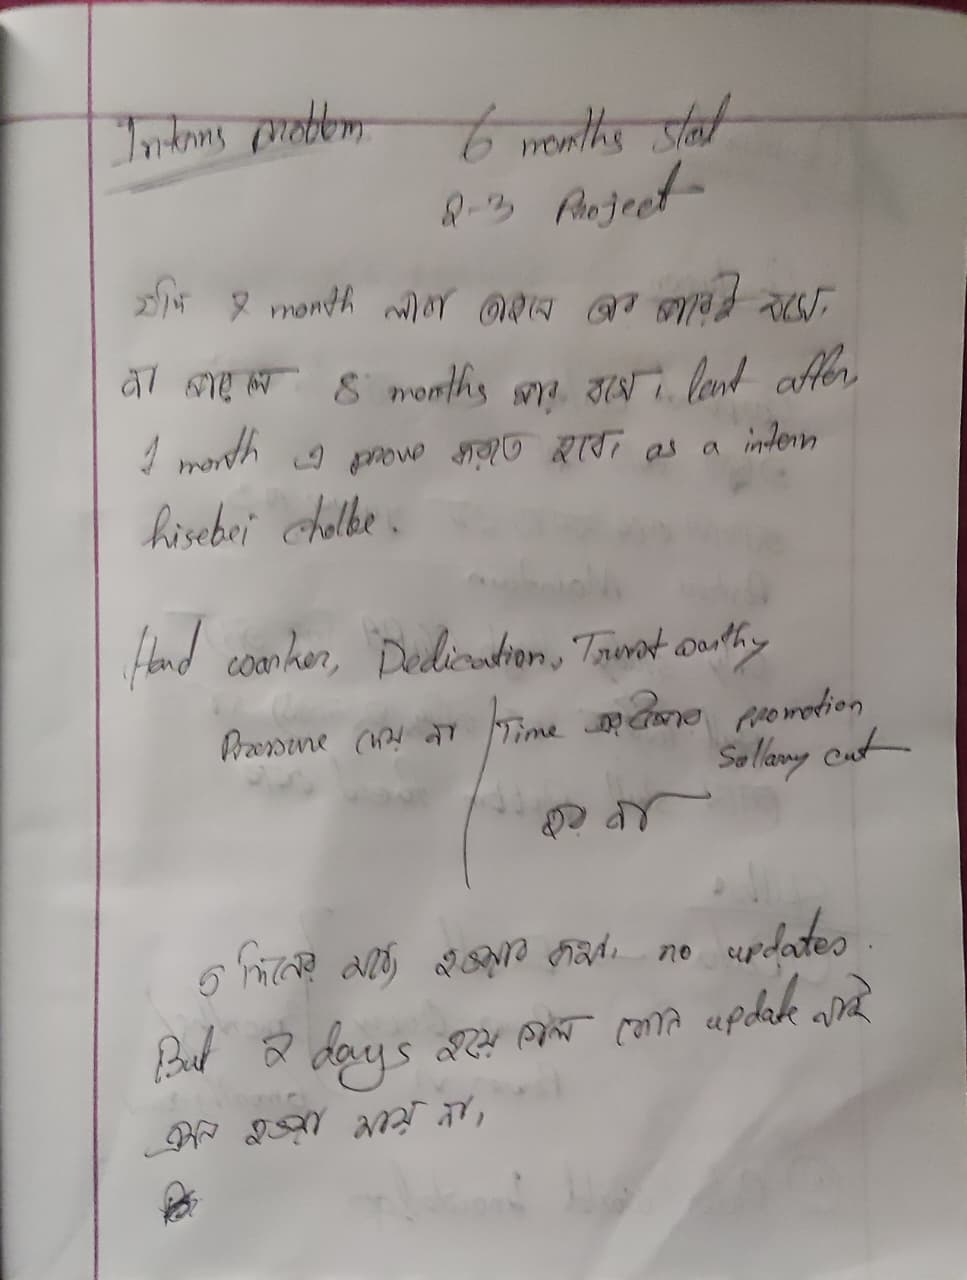 Interns problem 6 months
2-3 Project
যদি 2 month লাগে তাহলে
না পারলে 8 months আর after,
1 month এ prove করতে হবে। as a intern
hisebei cholbe.
Hard worker, Dedication, Trust worthy
Pressure দেয় না / Time promotion
Sallary cut
হয় না
৩ দিনের মধ্যে হওয়ার কথা। no updates.
But 2 days হয়ে গেল কোন update নাই
এমন হওয়া যাবে না,